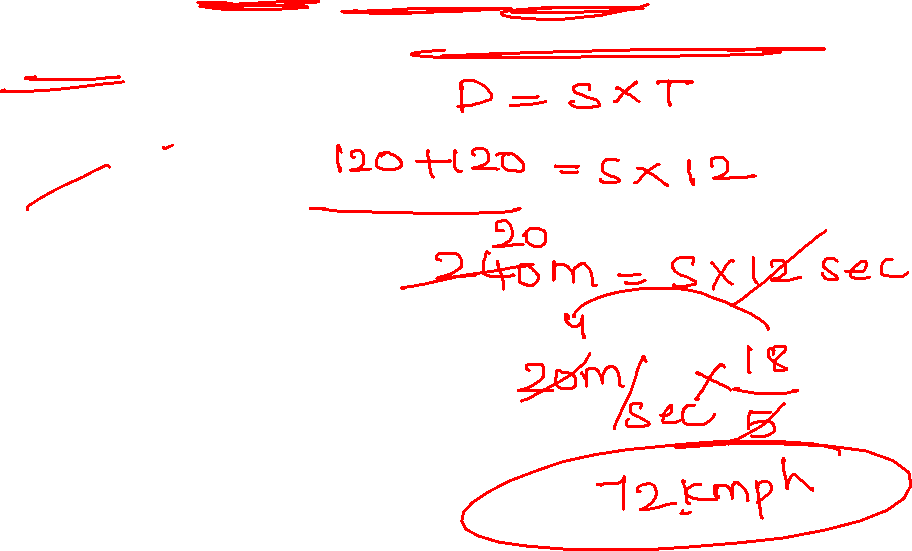 D = S × T
120 + 120 = S × 12
20
240m = S × 12 sec
4
20m/sec × 18/5
72 kmph